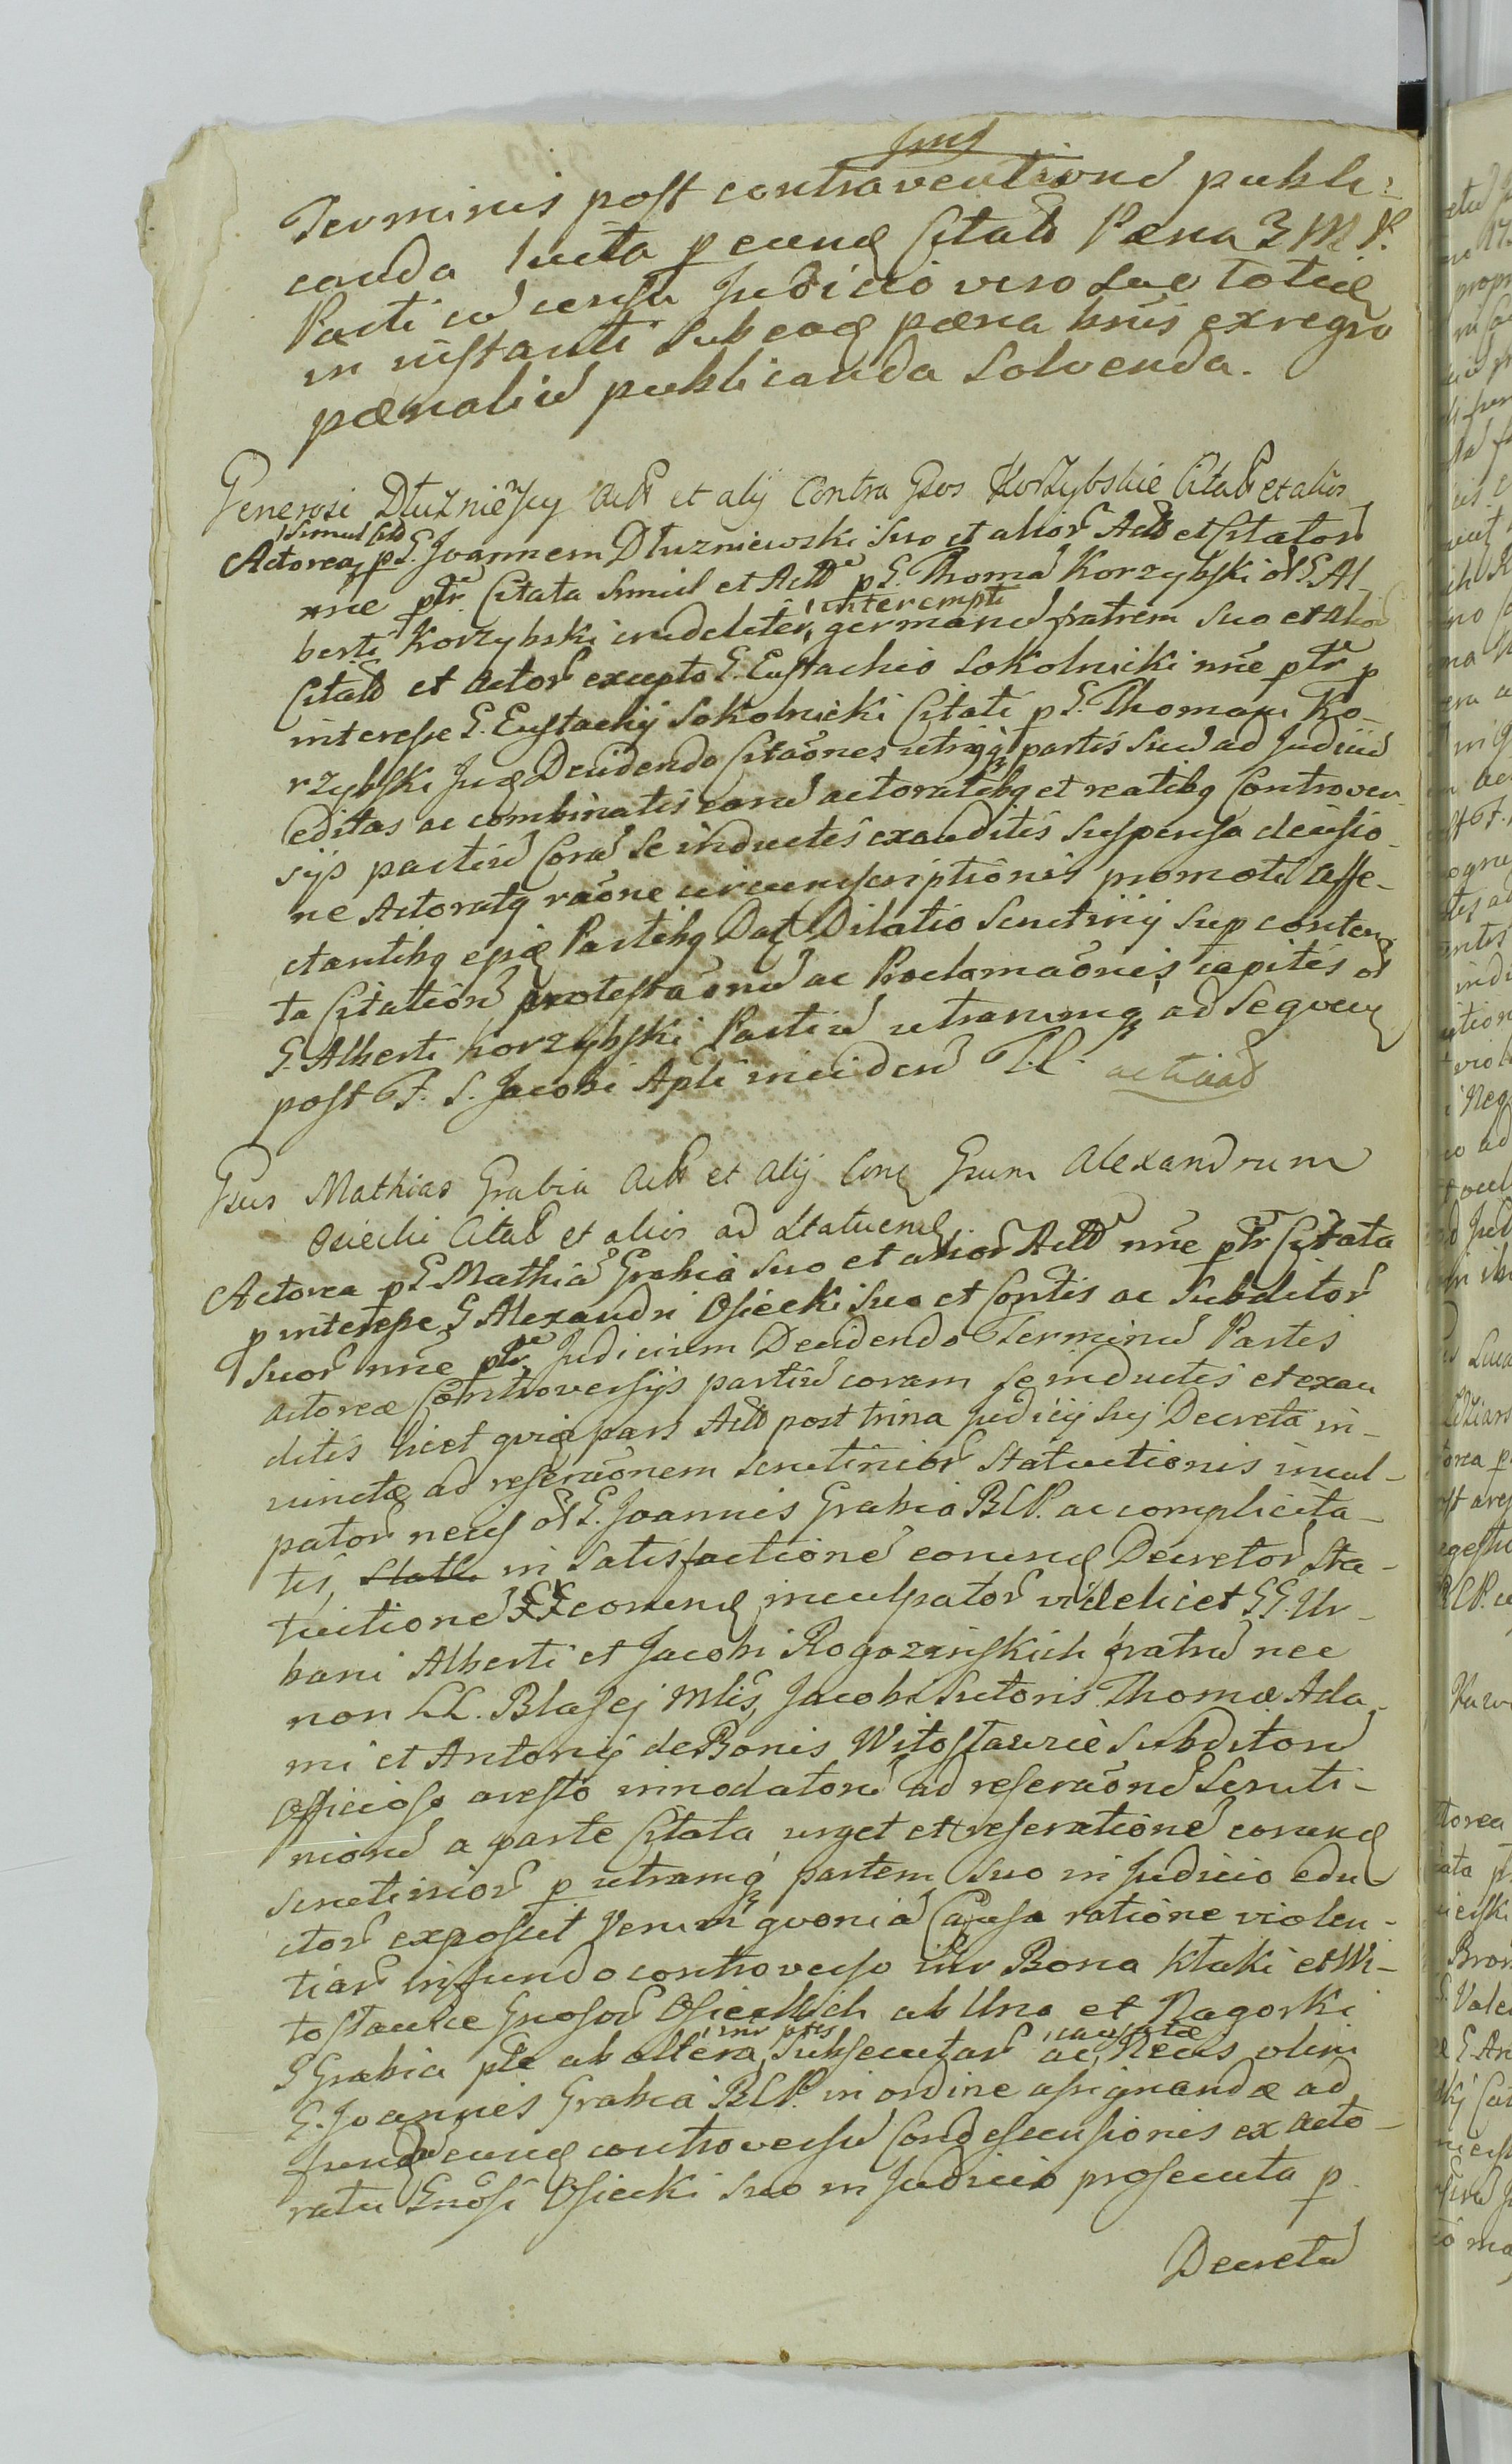 Terminis post contraventionē publi:
canda Iucta p eund Citatō Paena 3 M P.
Parti ad censa Judicio vero suo totid
in instanti sub ead paena bnis ex regro
paenaliū publicanda solvenda.
Generosi Dłużniewscy Act et alij Contra Gsos Korzybskie Citat et alios
Simul Citō
Actorea p G. Joannem Dłuzniewski suo et alior Actō et Citator
nne ptr Citata simul et Actō p G. Thomā Korzybski ol G. Al-
interempti
berti Korzybski crudeliter, germanū fratrem suo et alior
Citatō et actor excepto G. Eustachio Sokolnicki nne ptr p
interesse G. Eustachij Sokolnicki Citati p G. Thomam Ko-
rzybski Jud Decidendo Citaōnes utriqq partis suū ad Judiciū
editas ac combinatis earū actoratibq et reatibq Controver-
sijs partiū Corā se inductis exauditis suspensa decisio-
ne Actoratq raōne circumscriptionis promoti affe-
ctantibq ejsd Partibq Dat Dilatio Scrutinij sup conten-
ta Citationū protestaōnū ac Proclamaōnis, capitis ol
G. Alberti Korzybski Partiū utramq ad sequen
post F. S. Jacobi Apli inciden T.C. acticat
Gsus Mathias Grabia Act et alij Con Gsum Alexandrum
Osiecki Citat et alios ad Statuend
Actorea p G. Mathiā Grabia suo et alior Actō nne ptr Citata
p interesse G Alexandri Osiecki suo et Contis ac Subditor
suor nne ptr Judicium Decidendo Terminū Partis
actoreae Controversijs partiū coram se inductis et exau
ditis licet quid pars Actō post trina Judicij huj Decreta in-
vincta ad reseraōnem scrutinior Statuitionis incul-
pator necis ol G. Joannis Grabia B.C.P. ac complicita-
tis, in satisfactionē eorund Decretor Sta-
tuitionē eorund inculpator videlicet GG. Ur-
bani Alberti et Jacobi Rogozinskich fratrū nec
non LL. Blasej Mlis, Jacobi Sutoris Thomae Ada-
mi et Antonij de Bonis Witosławie Subditorū
officioso aresto innodatorū ad reseraōnē Scruti-
niorū a parte Citata urget et reserationē eorund
scrutinior p utramq partem suo in Judicio edu
ctor exposcit Verum quoniā Causa ratione violen-
tiar in fundo controverso intr Bona Kłaki et Wi-
tosławice Gnosor Osieckich ab Una et Nagorki
intr ptes causatae
G Grabia pte ab altera, Subsecutar ac, Necis olim
G. Joannis Grabia B.C.P. in ordine assignandae ad
fundū eund controversū Condescensionis ex acto-
ratu Gnosi Osiecki suo in Judicio prosecuta p
Decretū